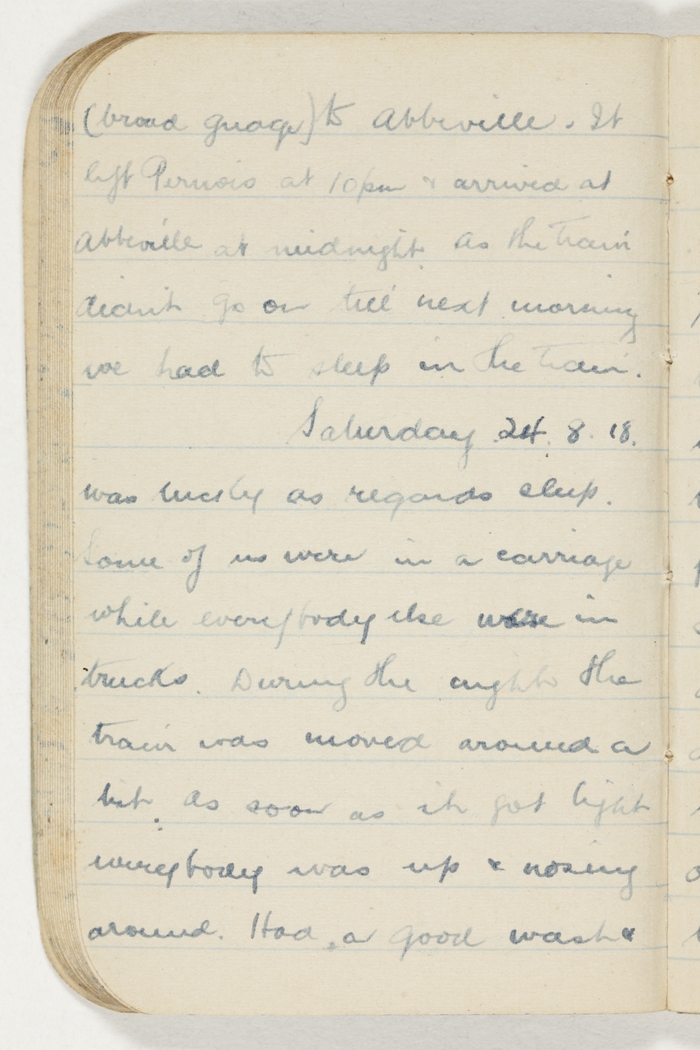 (broad guage) to Abbeville. It
left Pernois at 10pm & arrived at
Abbeville at midnight. As the train
didn't go on till next morning
we had to sleep in the train.
Saturday 24. 8. 18.
was lucky as regards sleep.
Some of us were in a carriage
while everybody else were in
trucks. During the night the
train was moved around a
bit. As soon as it got light
everybody was up & nosing
around. Had a good wash &